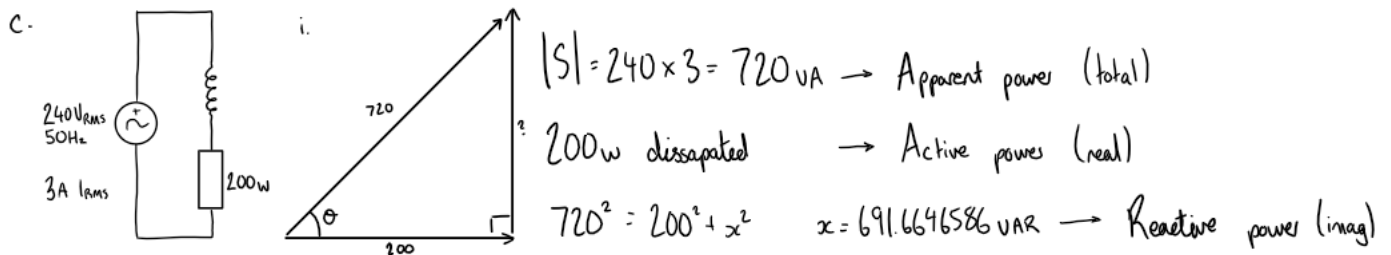 C.
i.
240V RMS
50Hz
3A IRMS
200w
720
?
θ
200
|S| = 240 × 3 = 720 VA → Apparent power (total)
200w dissapated → Active power (real)
720² = 200² + x² x = 691.6646586 VAR → Reactive power (imag)